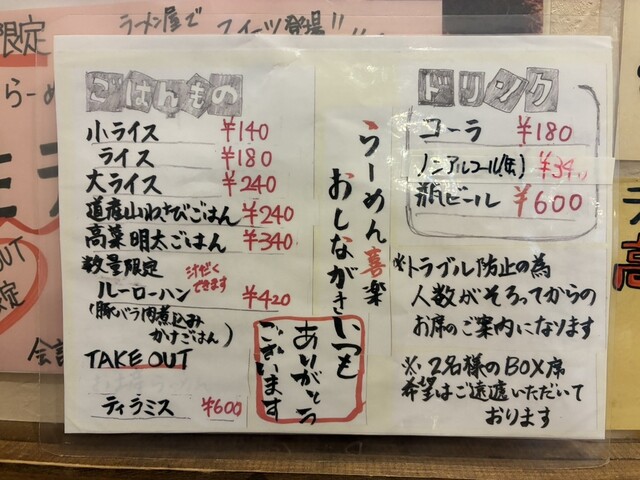 限定
ラーメン屋で
スイーツ登場!!
ごはんもの
小ライス ¥140
ライス ¥180
大ライス ¥240
道産山わさびごはん ¥240
高菜明太ごはん ¥340
数量限定
汁だく
できます
ルーローハン ¥420
(豚バラ肉煮込み
かけごはん)
TAKE OUT
ティラミス ¥600
らーめん喜楽
おしながき
いつも
ありがとう
ございます
ドリンク
コーラ ¥180
ノンアルコール(缶)
瓶ビール ¥600
※トラブル防止の為
人数がそろってからの
お席のご案内になります
※2名様のBOX席
希望はご遠慮いただいて
おります